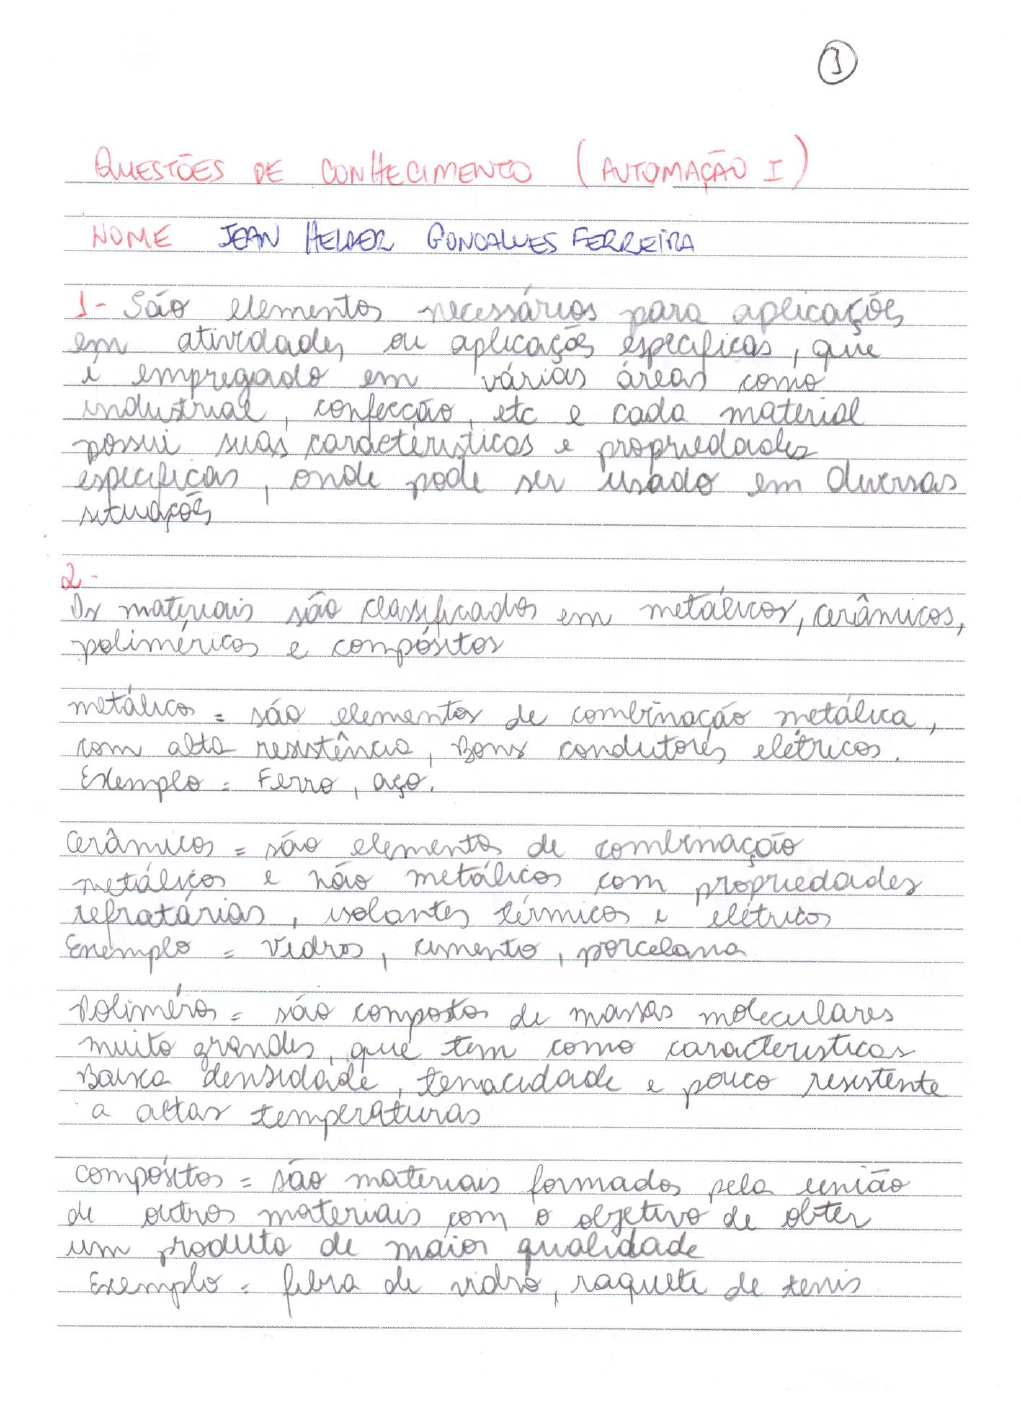 1
QUESTÕES DE CONHECIMENTO (AUTOMAÇÃO I)
NOME JEAN HELDER GONCALVES FERREIRA
1- São elementos necessários para aplicações
em atividades ou aplicações especificas, que
é empregado em várias áreas como
industrial, confecção, etc e cada material
possui suas caracteristicas e propriedades
especificas, onde pode ser usado em diversas
situações
2-
Os materiais são classificados em metálicos, cerâmicos,
poliméricos e compósitos
metálicos = são elementos de combinação metálica,
com alta resistência, Bons condutores elétricos.
Exemplo = Ferro, aço.
Cerâmicos = são elementos de combinação
metálicos e não metálicos com propriedades
refratárias, isolantes térmicos e elétricos
Exemplo = Vidros, cimento, porcelana
Poliméros = são compostos de massas moleculares
muito grandes, que tem como caracteristicas
Baixa densidade, tenacidade e pouco resistente
a altas temperaturas
compósitos = são materiais formados pela união
de outros materiais com o objetivo de obter
um produto de maior qualidade
Exemplo = fibra de vidro, raquete de tenis